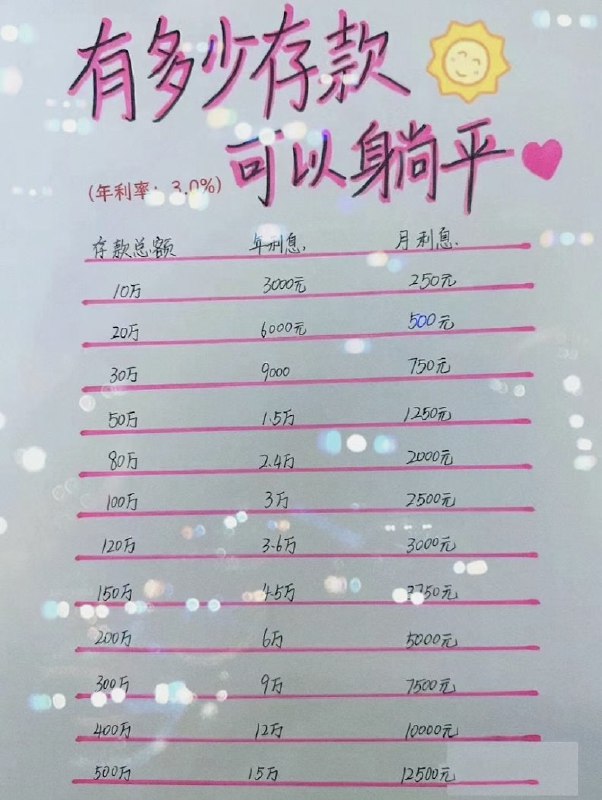 有多少存款
可以躺平
(年利率：3.0%)
存款总额 年利息 月利息
10万 3000元 250元
20万 6000元 500元
30万 9000 750元
50万 1.5万 1250元
80万 2.4万 2000元
100万 3万 2500元
120万 3.6万 3000元
150万 4.5万 3750元
200万 6万 5000元
300万 9万 7500元
400万 12万 10000元
500万 15万 12500元